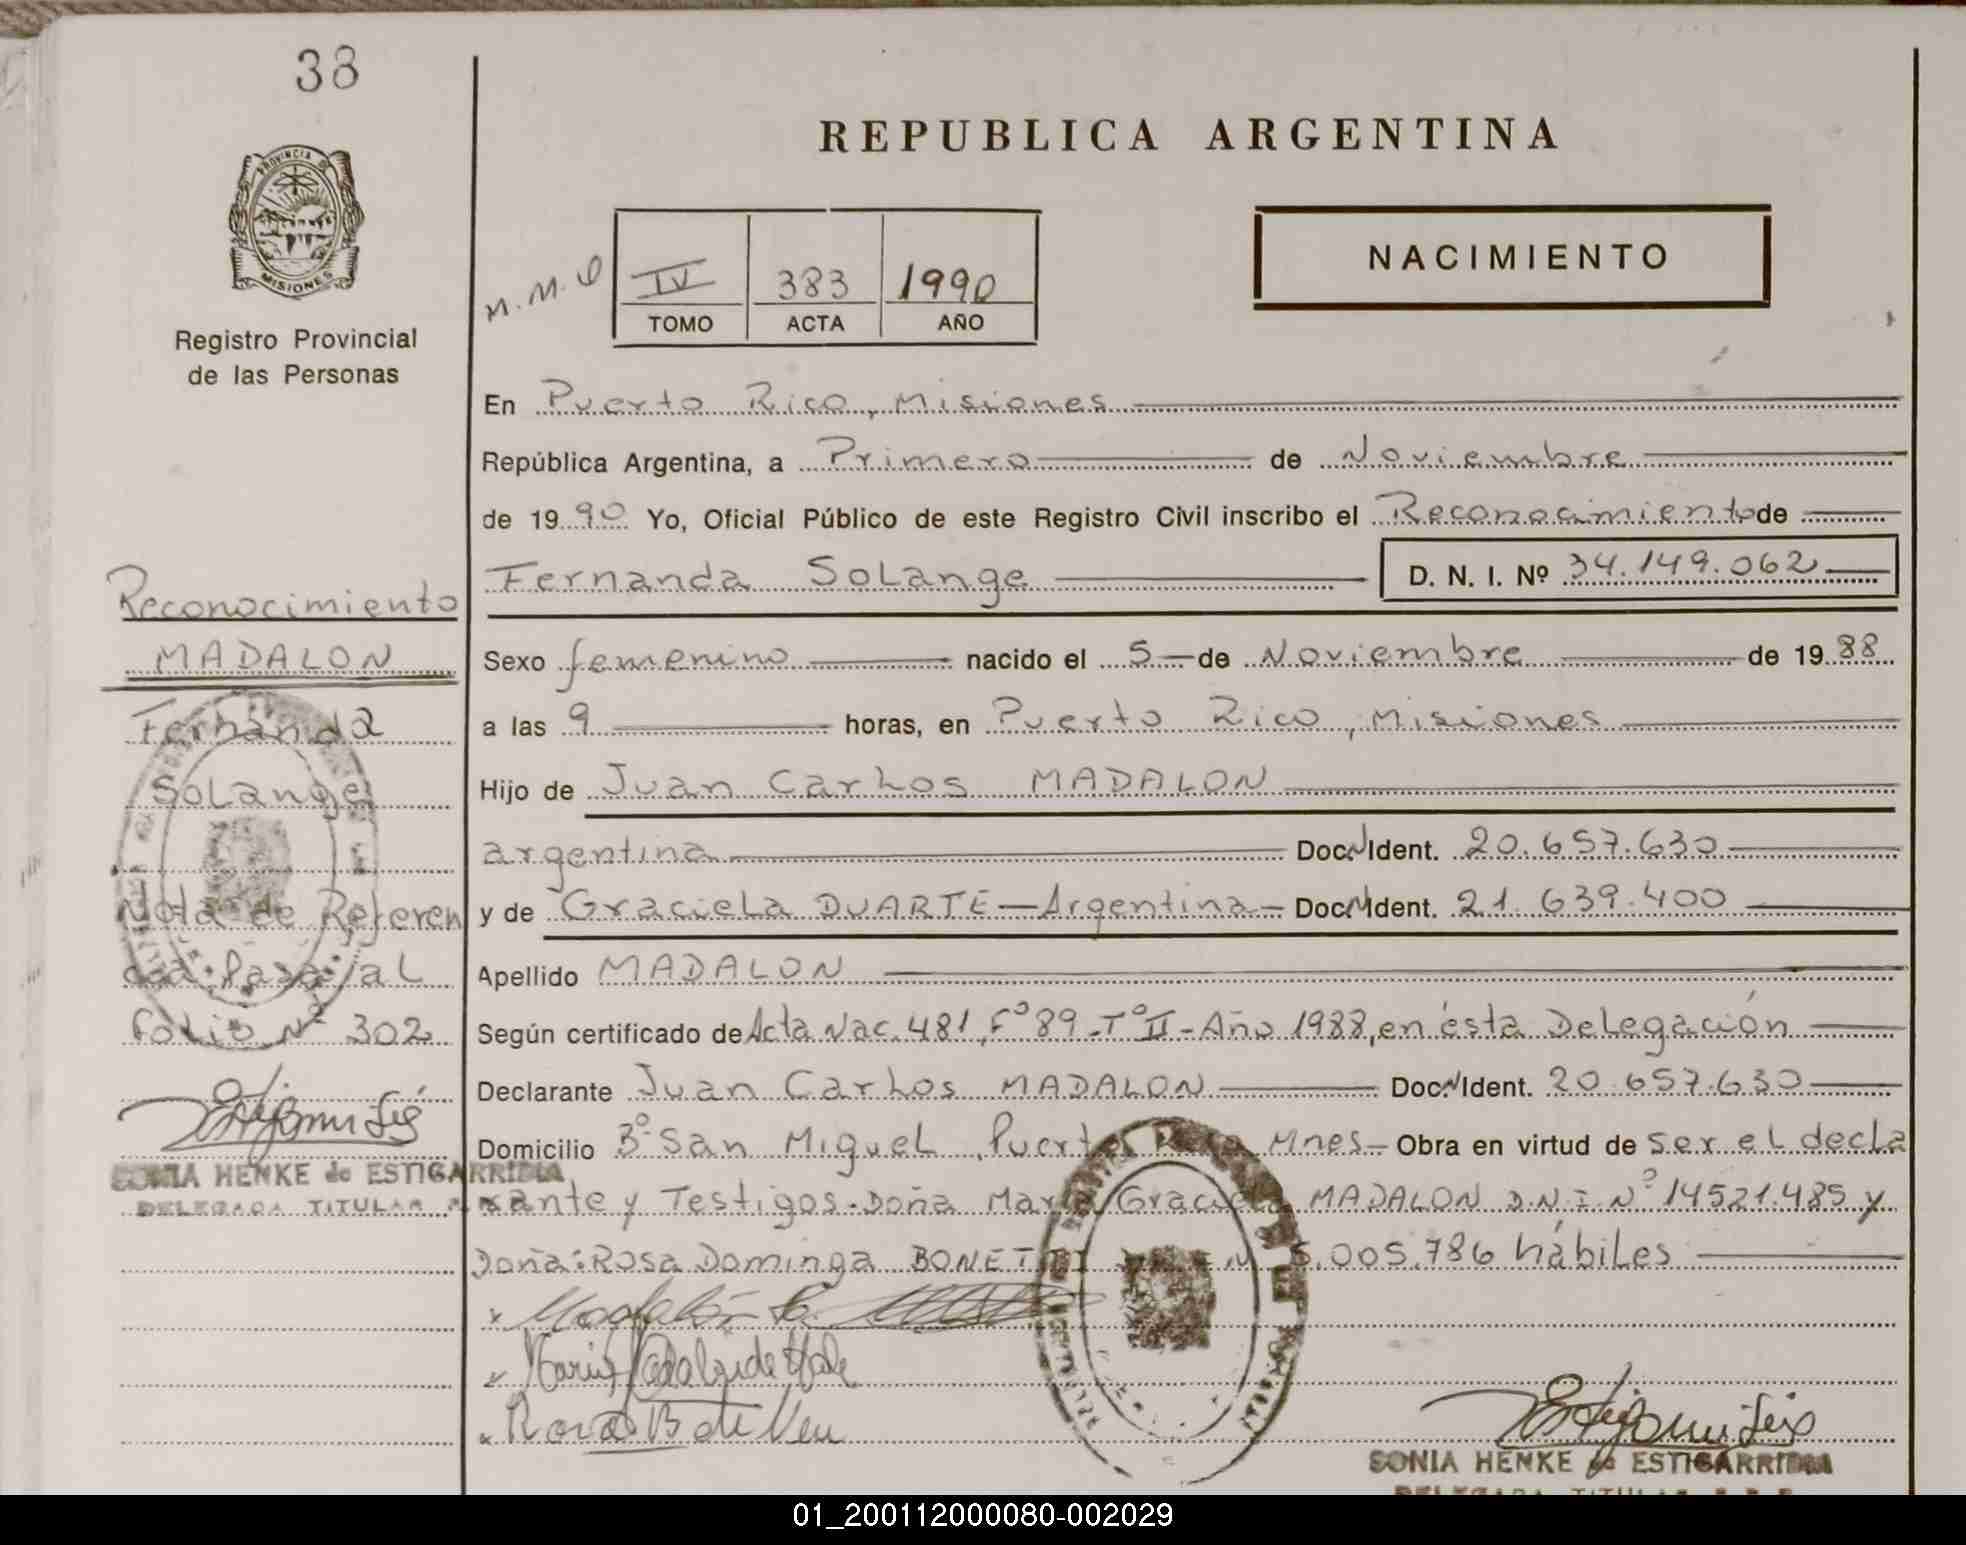 38
REPUBLICA ARGENTINA
PROVINCIA DE
MISIONES
Registro Provincial
de las Personas
M.M.O
IV 383 1990
TOMO ACTA AÑO
NACIMIENTO
En Puerto Rico, Misiones
República Argentina, a Primero de Noviembre
de 1990 Yo, Oficial Público de este Registro Civil inscribo el Reconocimiento de
Fernanda Solange D. N. I. Nº 34.149.062
Sexo femenino nacido el 5 de Noviembre de 1988
a las 9 horas, en Puerto Rico, Misiones
Hijo de Juan Carlos MADALON
argentina Doc. N Ident. 20.657.630
y de Graciela DUARTE - Argentina - Doc. N Ident. 21.639.400
Apellido MADALON
Según certificado de Acta Nac. 481, Fº 89 - Tº II - Año 1988, en ésta Delegación
Declarante Juan Carlos MADALON Doc. N Ident. 20.657.630
Domicilio Bº San Miguel, Puerto Rico Mnes - Obra en virtud de ser el decla
rante y Testigos - Doña María Graciela MADALON D.N.I. Nº 14521.485 y
Doña: Rosa Dominga BONETTI Nº 5.005.786 hábiles
Reconocimiento
MADALON
Fernanda
Solange
Nota de Referen
cia Pasa al
folio Nº 302
SONIA HENKE de ESTIGARRIBIA
DELEGADA TITULAR
Rosa B de Neu
SONIA HENKE de ESTIGARRIBIA
DELEGADA TITULAR
01_200112000080-002029